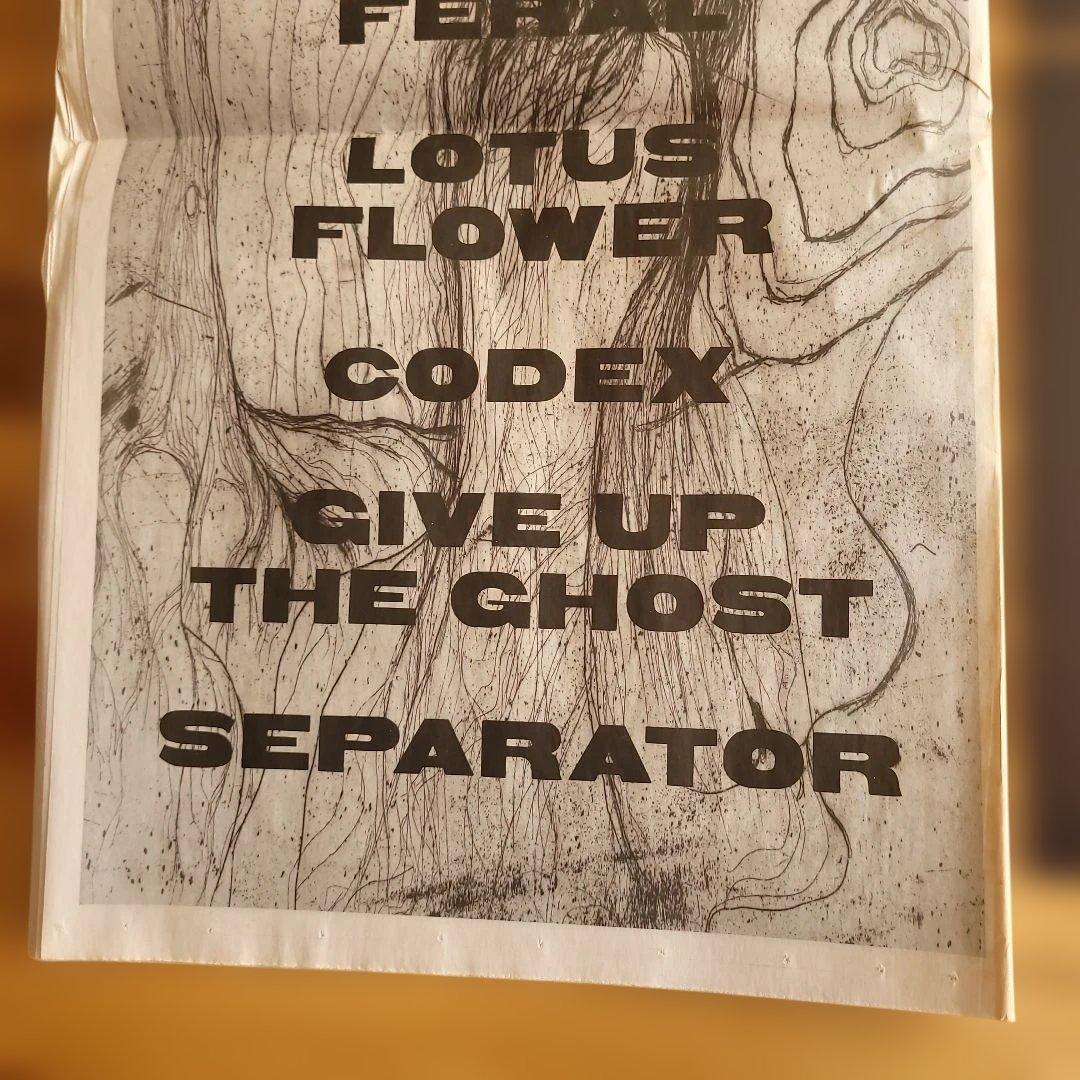 FERAL
LOTUS
FLOWER
CODEX
GIVE UP
THE GHOST
SEPARATOR